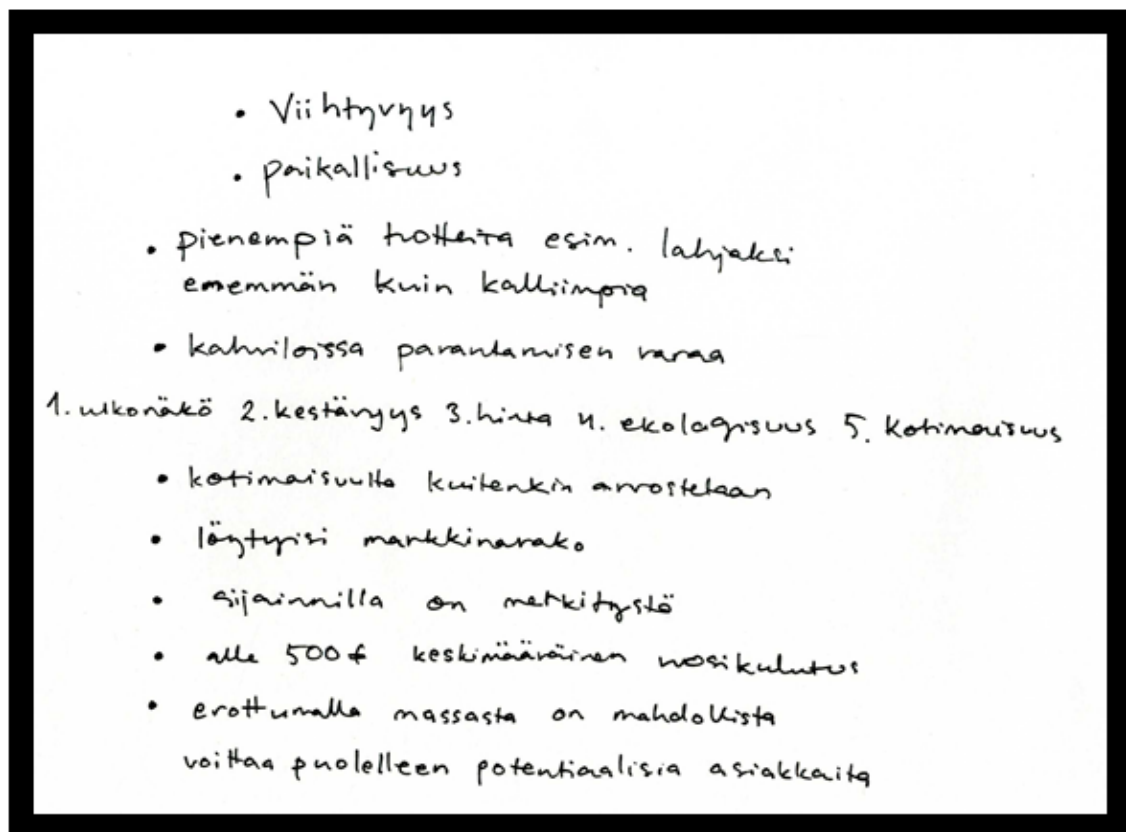 • Viihtyvyys
• paikallisuus
• pienempiä tuotteita esim. lahjaksi
enemmän kuin kalliimpia
• kahviloissa parantamisen varaa
1. ulkonäkö 2. kestävyys 3. hinta 4. ekologisuus 5. kotimaisuus
• kotimaisuutta kuitenkin arvostetaan
• löytyisi markkinarako
• sijainnilla on merkitystä
• alle 500 € keskimääräinen vuosikulutus
• erottumalla massasta on mahdollista
voittaa puolelleen potentiaalisia asiakkaita